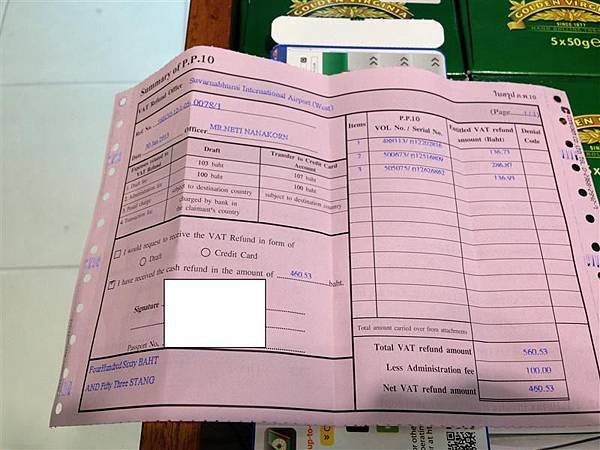 GOLDEN VIRGINIA
SINCE 1877
HAND ROLLING TOBACCO
5x50g℮
GOLDEN VIRGINIA
Summary of P.P.10
ใบสรุป ภ.พ.10
VAT Refund Office
Suvarnabhumi International Airport (West)
(Page 1/1)
Ref. No. 0078/1
Date 30 Jan 2013
Officer MR.NETI NANAKORN
Expenses related to VAT Refund
Draft
Transfer to Credit Card Account
1. Draft fee
103 baht
107 baht
2. Administration fee
100 baht
100 baht
3. Postal charge
subject to destination country
subject to destination country
4. Transaction fee
charged by bank in the claimant's country
I would request to receive the VAT Refund in form of
Draft
Credit Card
I have received the cash refund in the amount of 460.53 baht
Signature
Passport No.
FourHundred Sixty BAHT
AND Fifty Three STANG
Items
P.P.10 VOL No. / Serial No.
Entitled VAT refund amount (Baht)
Denial Code
1
136.73
2
286.87
3
136.93
Total amount carried over from attachments
Total VAT refund amount 560.53
Less Administration fee 100.00
Net VAT refund amount 460.53